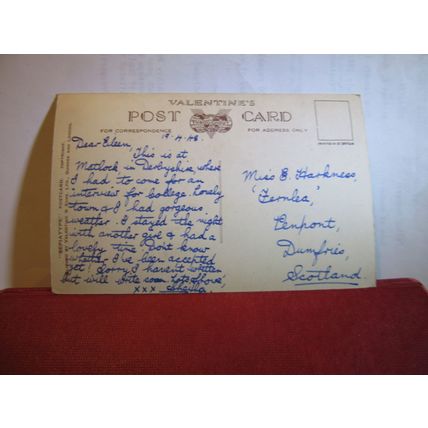 VALENTINE'S
POST CARD
FOR CORRESPONDENCE
FOR ADDRESS ONLY
"SEPIATYPE" POSTCARD.
19.4.48.
Dear Eileen,
This is at
Matlock in Derbyshire, where
I had to come for an
interview for College. Lovely
town & I had gorgeous
weather. I stayed the night
with another girl & had a
lovely time. Don't know
I've been accepted
yet! Sorry I haven't written
but will write soon. Lots of love,
x x x
Miss E. Harkness,
'Fernlea',
Penpont,
Dumfries,
Scotland